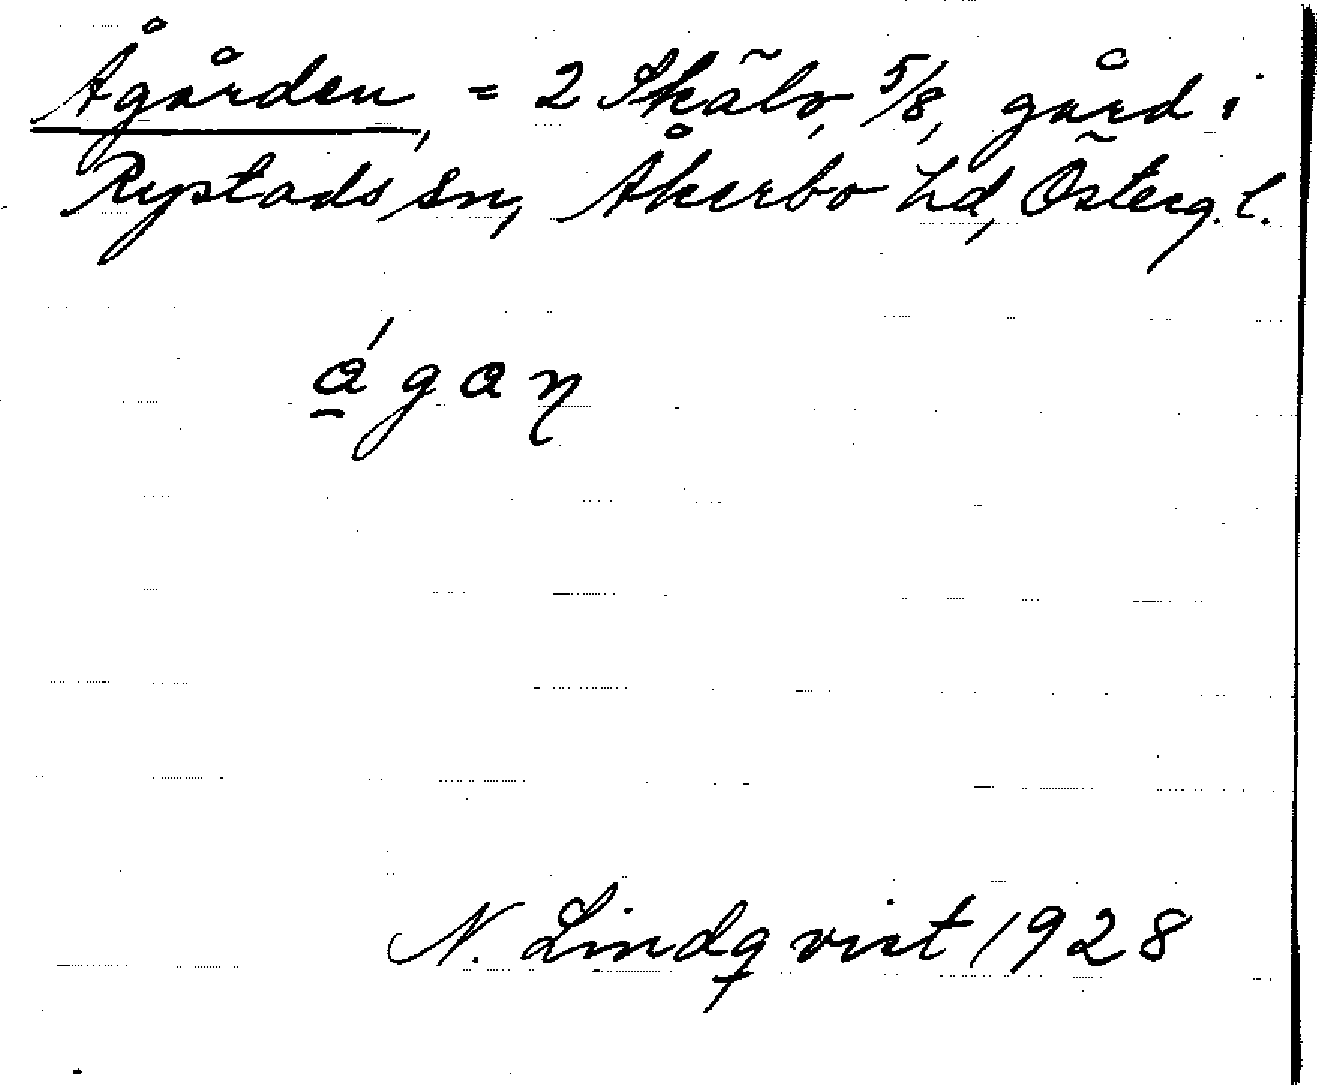 Ågården, = 2 Skälv, 5/8, gård i
Rystads sn, Åkerbo hd, Österg. l.
á̱gaꞃ
N. Lindqvist 1928